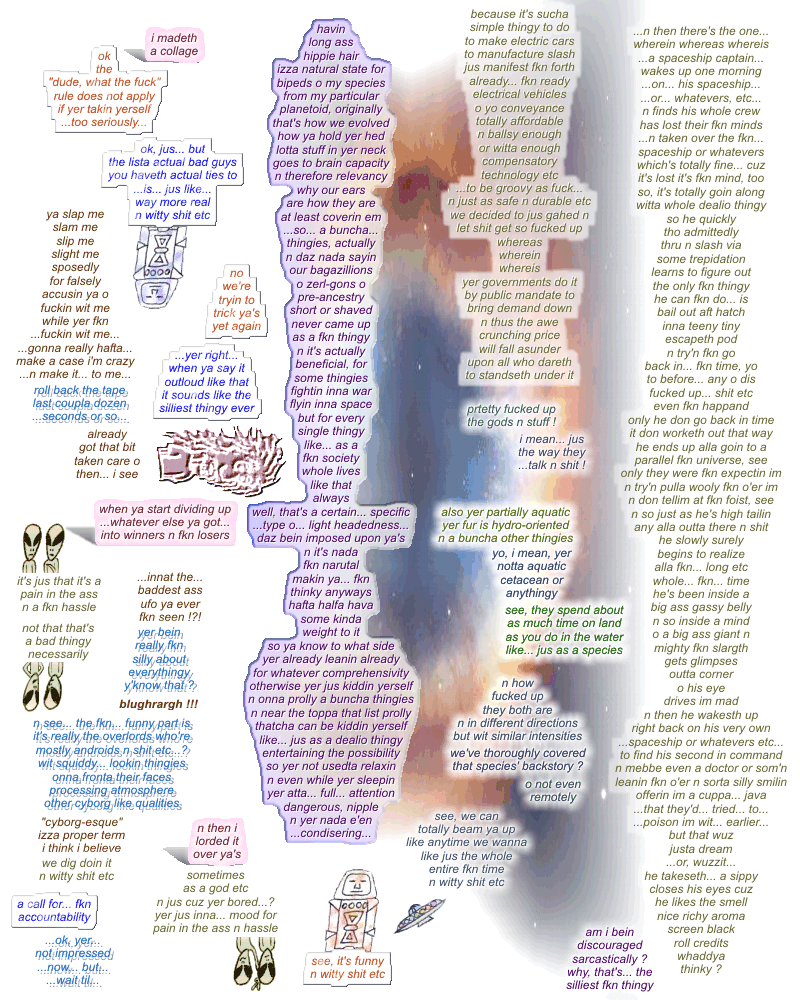 i madeth
a collage
ok
the
"dude, what the fuck"
rule does not apply
if yer takin yerself
...too seriously...
ok, jus... but
the lista actual bad guys
you haveth actual ties to
...is... jus like...
way more real
n witty shit etc
ya slap me
slam me
slip me
slight me
sposedly
for falsely
accusin ya o
fuckin wit me
while yer fkn
...fuckin wit me...
...gonna really hafta...
make a case i'm crazy
...n make it... to me...
roll back the tape
last coupla dozen
...seconds or so...
already
got that bit
taken care o
then... i see
no
we're
tryin to
trick ya's
yet again
...yer right...
when ya say it
outloud like that
it sounds like the
silliest thingy ever
when ya start dividing up
...whatever else ya got...
into winners n fkn losers
it's jus that it's a
pain in the ass
n a fkn hassle
not that that's
a bad thingy
necessarily
...innat the...
baddest ass
ufo ya ever
fkn seen !?!
yer bein
really fkn
silly about
everythingy
y'know that ?
blughrargh !!!
n see... the fkn... funny part is
it's really the overlords who're
mostly androids n shit etc...?
wit squiddy... lookin thingies
onna fronta their faces
processing atmosphere
other cyborg like qualities
"cyborg-esque"
izza proper term
i think i believe
we dig doin it
n witty shit etc
n then i
lorded it
over ya's
a call for... fkn
accountability
...ok, yer...
not impressed
...now... but...
...wait til...
sometimes
as a god etc
n jus cuz yer bored...?
yer jus inna... mood for
pain in the ass n hassle
havin
long ass
hippie hair
izza natural state for
bipeds o my species
from my particular
planetoid, originally
that's how we evolved
how ya hold yer hed
lotta stuff in yer neck
goes to brain capacity
n therefore relevancy
why our ears
are how they are
at least coverin em
...so... a buncha...
thingies, actually
n daz nada sayin
our bagazillions
o zerl-gons o
pre-ancestry
short or shaved
never came up
as a fkn thingy
n it's actually
beneficial, for
some thingies
fightin inna war
flyin inna space
but for every
single thingy
like... as a
fkn society
whole lives
like that
always
well, that's a certain... specific
...type o... light headedness...
daz bein imposed upon ya's
n it's nada
fkn narutal
makin ya... fkn
thinky anyways
hafta halfa hava
some kinda
weight to it
so ya know to what side
yer already leanin already
for whatever comprehensivity
otherwise yer jus kiddin yerself
n onna prolly a buncha thingies
n near the toppa that list prolly
thatcha can be kiddin yerself
like... jus as a dealio thingy
entertaining the possibility
so yer not usedta relaxin
n even while yer sleepin
yer atta... full... attention
dangerous, nipple
n yer nada e'en
...condisering...
see, it's funny
n witty shit etc
because it's sucha
simple thingy to do
to make electric cars
to manufacture slash
jus manifest fkn forth
already... fkn ready
electrical vehicles
o yo conveyance
totally affordable
n ballsy enough
or witta enough
compensatory
technology etc
...to be groovy as fuck...
n just as safe n durable etc
we decided to jus gahed n
let shit get so fucked up
whereas
wherein
whereis
yer governments do it
by public mandate to
bring demand down
n thus the awe
crunching price
will fall asunder
upon all who dareth
to standseth under it
prtetty fucked up
the gods n stuff !
i mean... jus
the way they
...talk n shit !
also yer partially aquatic
yer fur is hydro-oriented
n a buncha other thingies
yo, i mean, yer
notta aquatic
cetacean or
anythingy
see, they spend about
as much time on land
as you do in the water
like... jus as a species
n how
fucked up
they both are
n in different directions
but wit similar intensities
we've thoroughly covered
that species' backstory ?
o not even
remotely
see, we can
totally beam ya up
like anytime we wanna
like jus the whole
entire fkn time
n witty shit etc
am i bein
discouraged
sarcastically ?
why, that's... the
silliest fkn thingy
...n then there's the one...
wherein whereas whereis
...a spaceship captain...
wakes up one morning
...on... his spaceship...
...or... whatevers, etc...
n finds his whole crew
has lost their fkn minds
...n taken over the fkn...
spaceship or whatevers
which's totally fine... cuz
it's lost it's fkn mind, too
so, it's totally goin along
witta whole dealio thingy
so he quickly
tho admittedly
thru n slash via
some trepidation
learns to figure out
the only fkn thingy
he can fkn do... is
bail out aft hatch
inna teeny tiny
escapeth pod
n try'n fkn go
back in... fkn time, yo
to before... any o dis
fucked up... shit etc
even fkn happand
only he don go back in time
it don worketh out that way
he ends up alla goin to a
parallel fkn universe, see
only they were fkn expectin im
n try'n pulla wooly fkn o'er im
n don tellim at fkn foist, see
n so just as he's high tailin
any alla outta there n shit
he slowly surely
begins to realize
alla fkn... long etc
whole... fkn... time
he's been inside a
big ass gassy belly
n so inside a mind
o a big ass giant n
mighty fkn slargth
gets glimpses
outta corner
o his eye
drives im mad
n then he wakesth up
right back on his very own
...spaceship or whatevers etc...
to find his second in command
n mebbe even a doctor or som'n
leanin fkn o'er n sorta silly smilin
offerin im a cuppa... java
...that they'd... tried... to...
...poison im wit... earlier...
but that wuz
justa dream
...or, wuzzit...
he takeseth... a sippy
closes his eyes cuz
he likes the smell
nice richy aroma
screen black
roll credits
whaddya
thinky ?